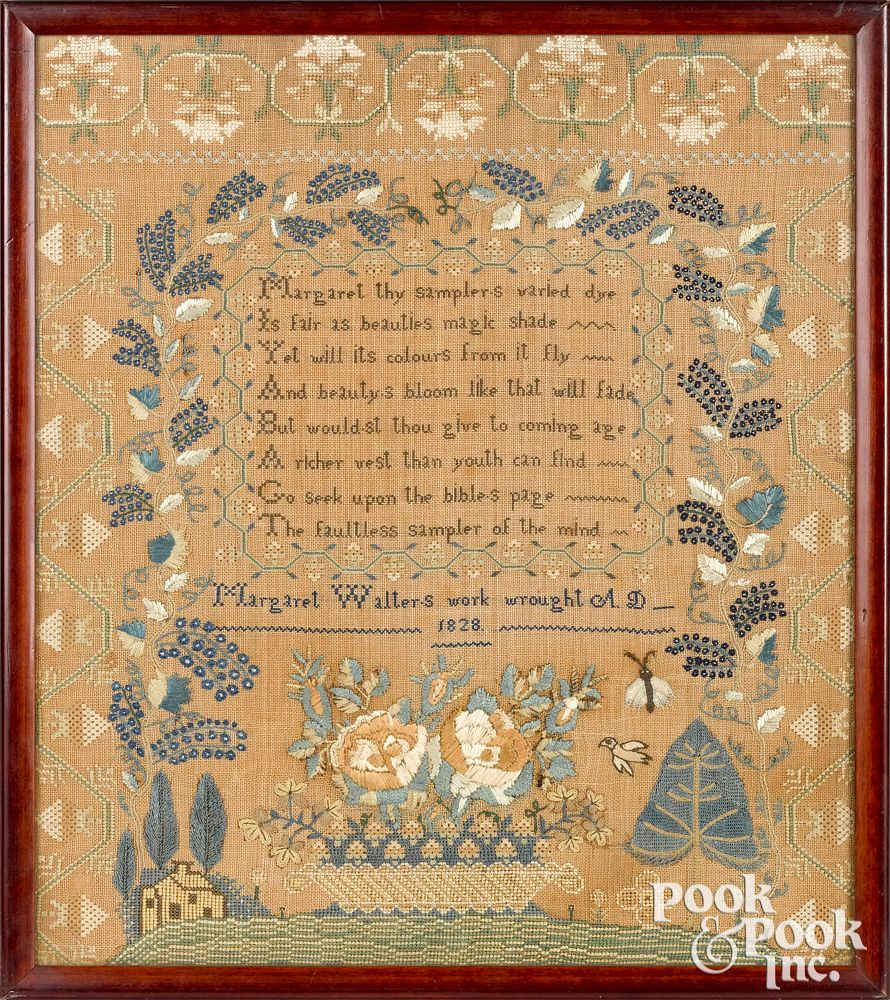 Margaret thy sampler,s varied dye
Is fair as beauties magic shade
Yet will its colours from it fly
And beauty,s bloom like that will fade
But would,st thou give to coming age
A richer vest than youth can find
Go seek upon the bible,s page
The faultless sampler of the mind
Margaret Walter,s work wrought A. D
1828
Pook
& Pook
Inc.